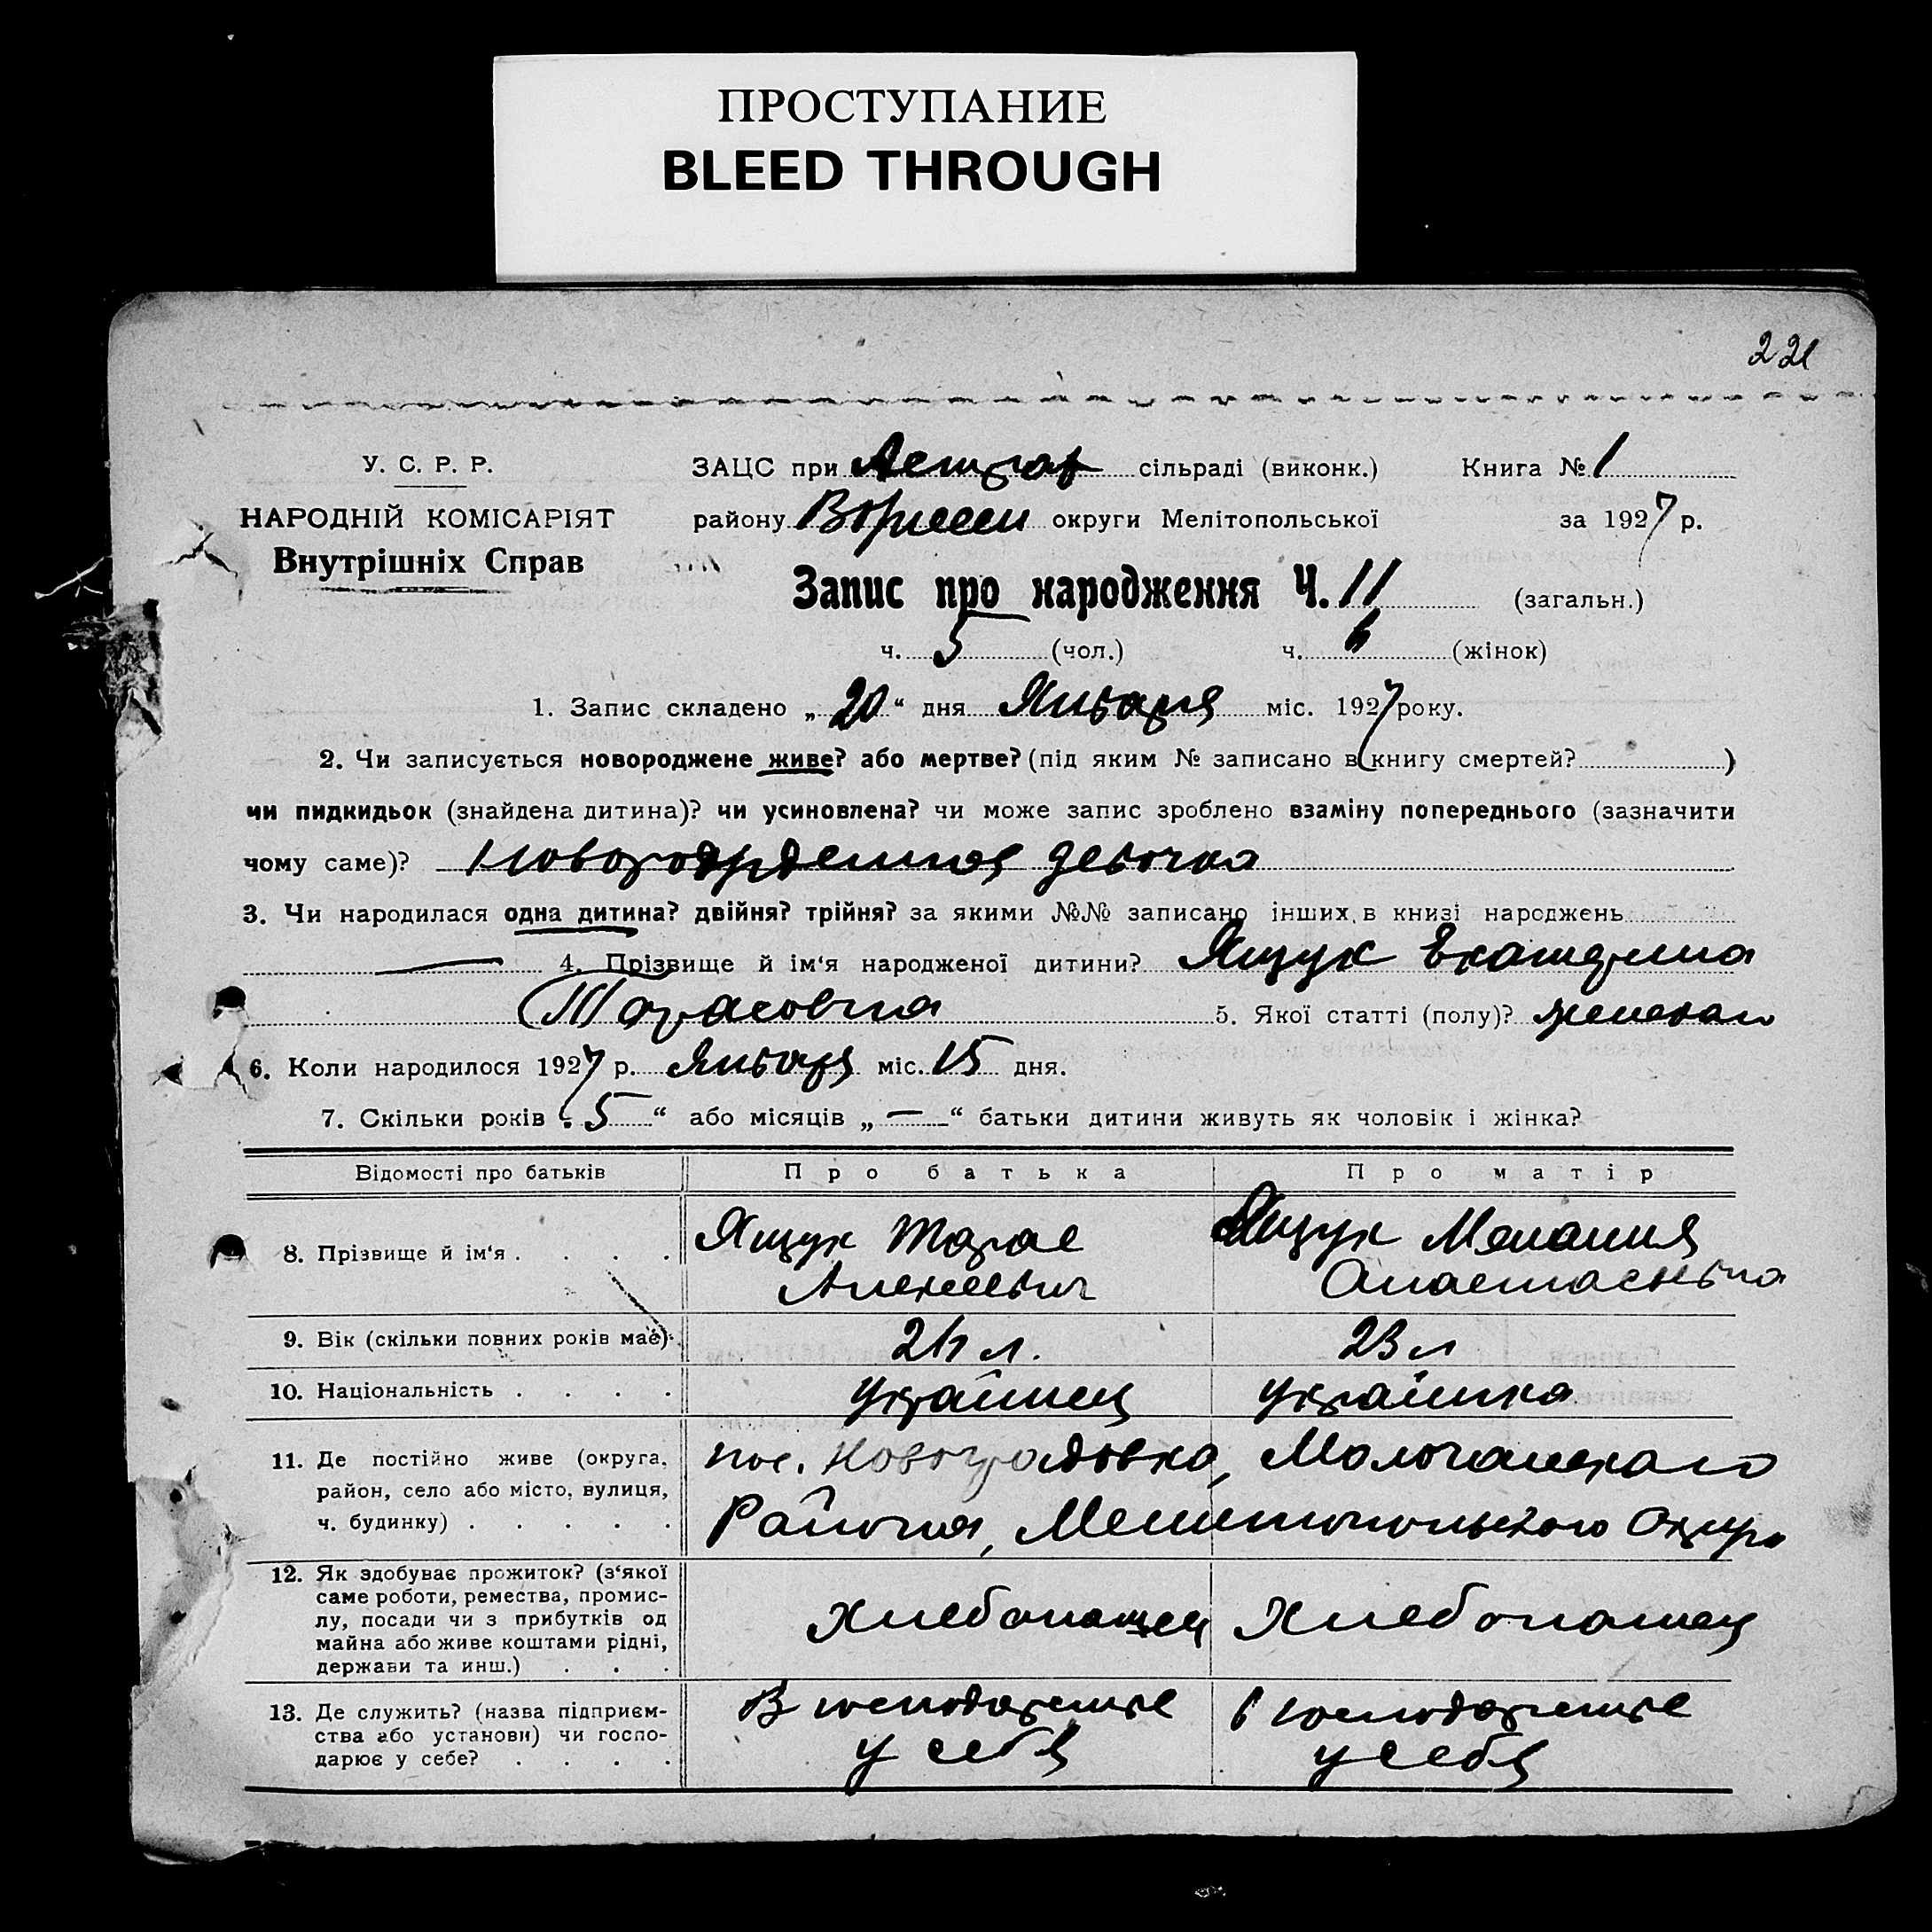 ПРОСТУПАНИЕ
BLEED THROUGH
221
У. С. Р. Р.
НАРОДНІЙ КОМІСАРІЯТ
Внутрішніх Справ
ЗАЦС при сільраді (виконк.) Книга № 1
району округи Мелітопольської за 1927 р.
Запис про народження Ч. 11 (загальн.)
ч. 5 (чол.) ч. 6 (жінок)
1. Запис складено „20“ дня Января міс. 1927 року.
2. Чи записується новороджене живе? або мертве? (під яким № записано в книгу смертей? )
чи пидкидьок (знайдена дитина)? чи усиновлена? чи може запис зроблено взаміну попереднього (зазначити
чому саме)? Новорожденная девочка
3. Чи народилася одна дитина? двійня? трійня? за якими №№ записано інших в книзі народжень
— 4. Прізвище й ім‘я народженої дитини? Ящук Екатерина
Тарасовна 5. Якої статті (полу)? женского
6. Коли народилося 1927 р. Января міс. 15 дня.
7. Скільки років „5“ або місяців „—“ батьки дитини живуть як чоловік і жінка?
Відомості про батьків Про батька Про матір
8. Прізвище й ім‘я . . . . Ящук Тарас Ящук Мелания
Алексеевич Анастасьевна
9. Вік (скільки повних років має) л. 23 л
10. Національність . . . . Украинец Украинка
11. Де постійно живе (округа, пос. Новоградовка, Молочанского
район, село або місто, вулиця,
ч. будинку) . . . . . Района, Мелитопольского Округа
12. Як здобуває прожиток? (з‘якої
саме роботи, ремества, промис-
лу, посади чи з прибутків од Хлебопашец Хлебопашец
майна або живе коштами рідні,
держави та инш.) . . .
13. Де служить? (назва підприєм- В господарстве в господарстве
ства або установи) чи госпо-
дарює у себе? . . . . у себя у себя